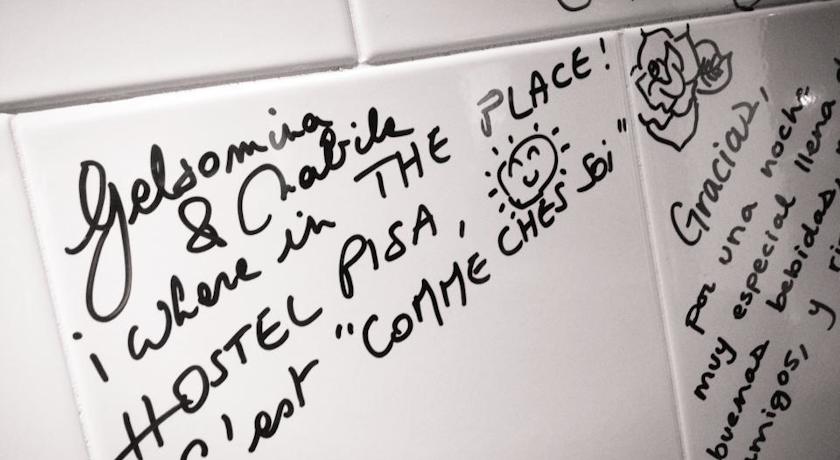 Gelsomina
& Chabile
i where in THE PLACE!
HOSTEL PISA,
C'est "COMME CHES Soi"
Gracias,
por una noche
muy especial llena d
buenas bebidas,
amigos, y